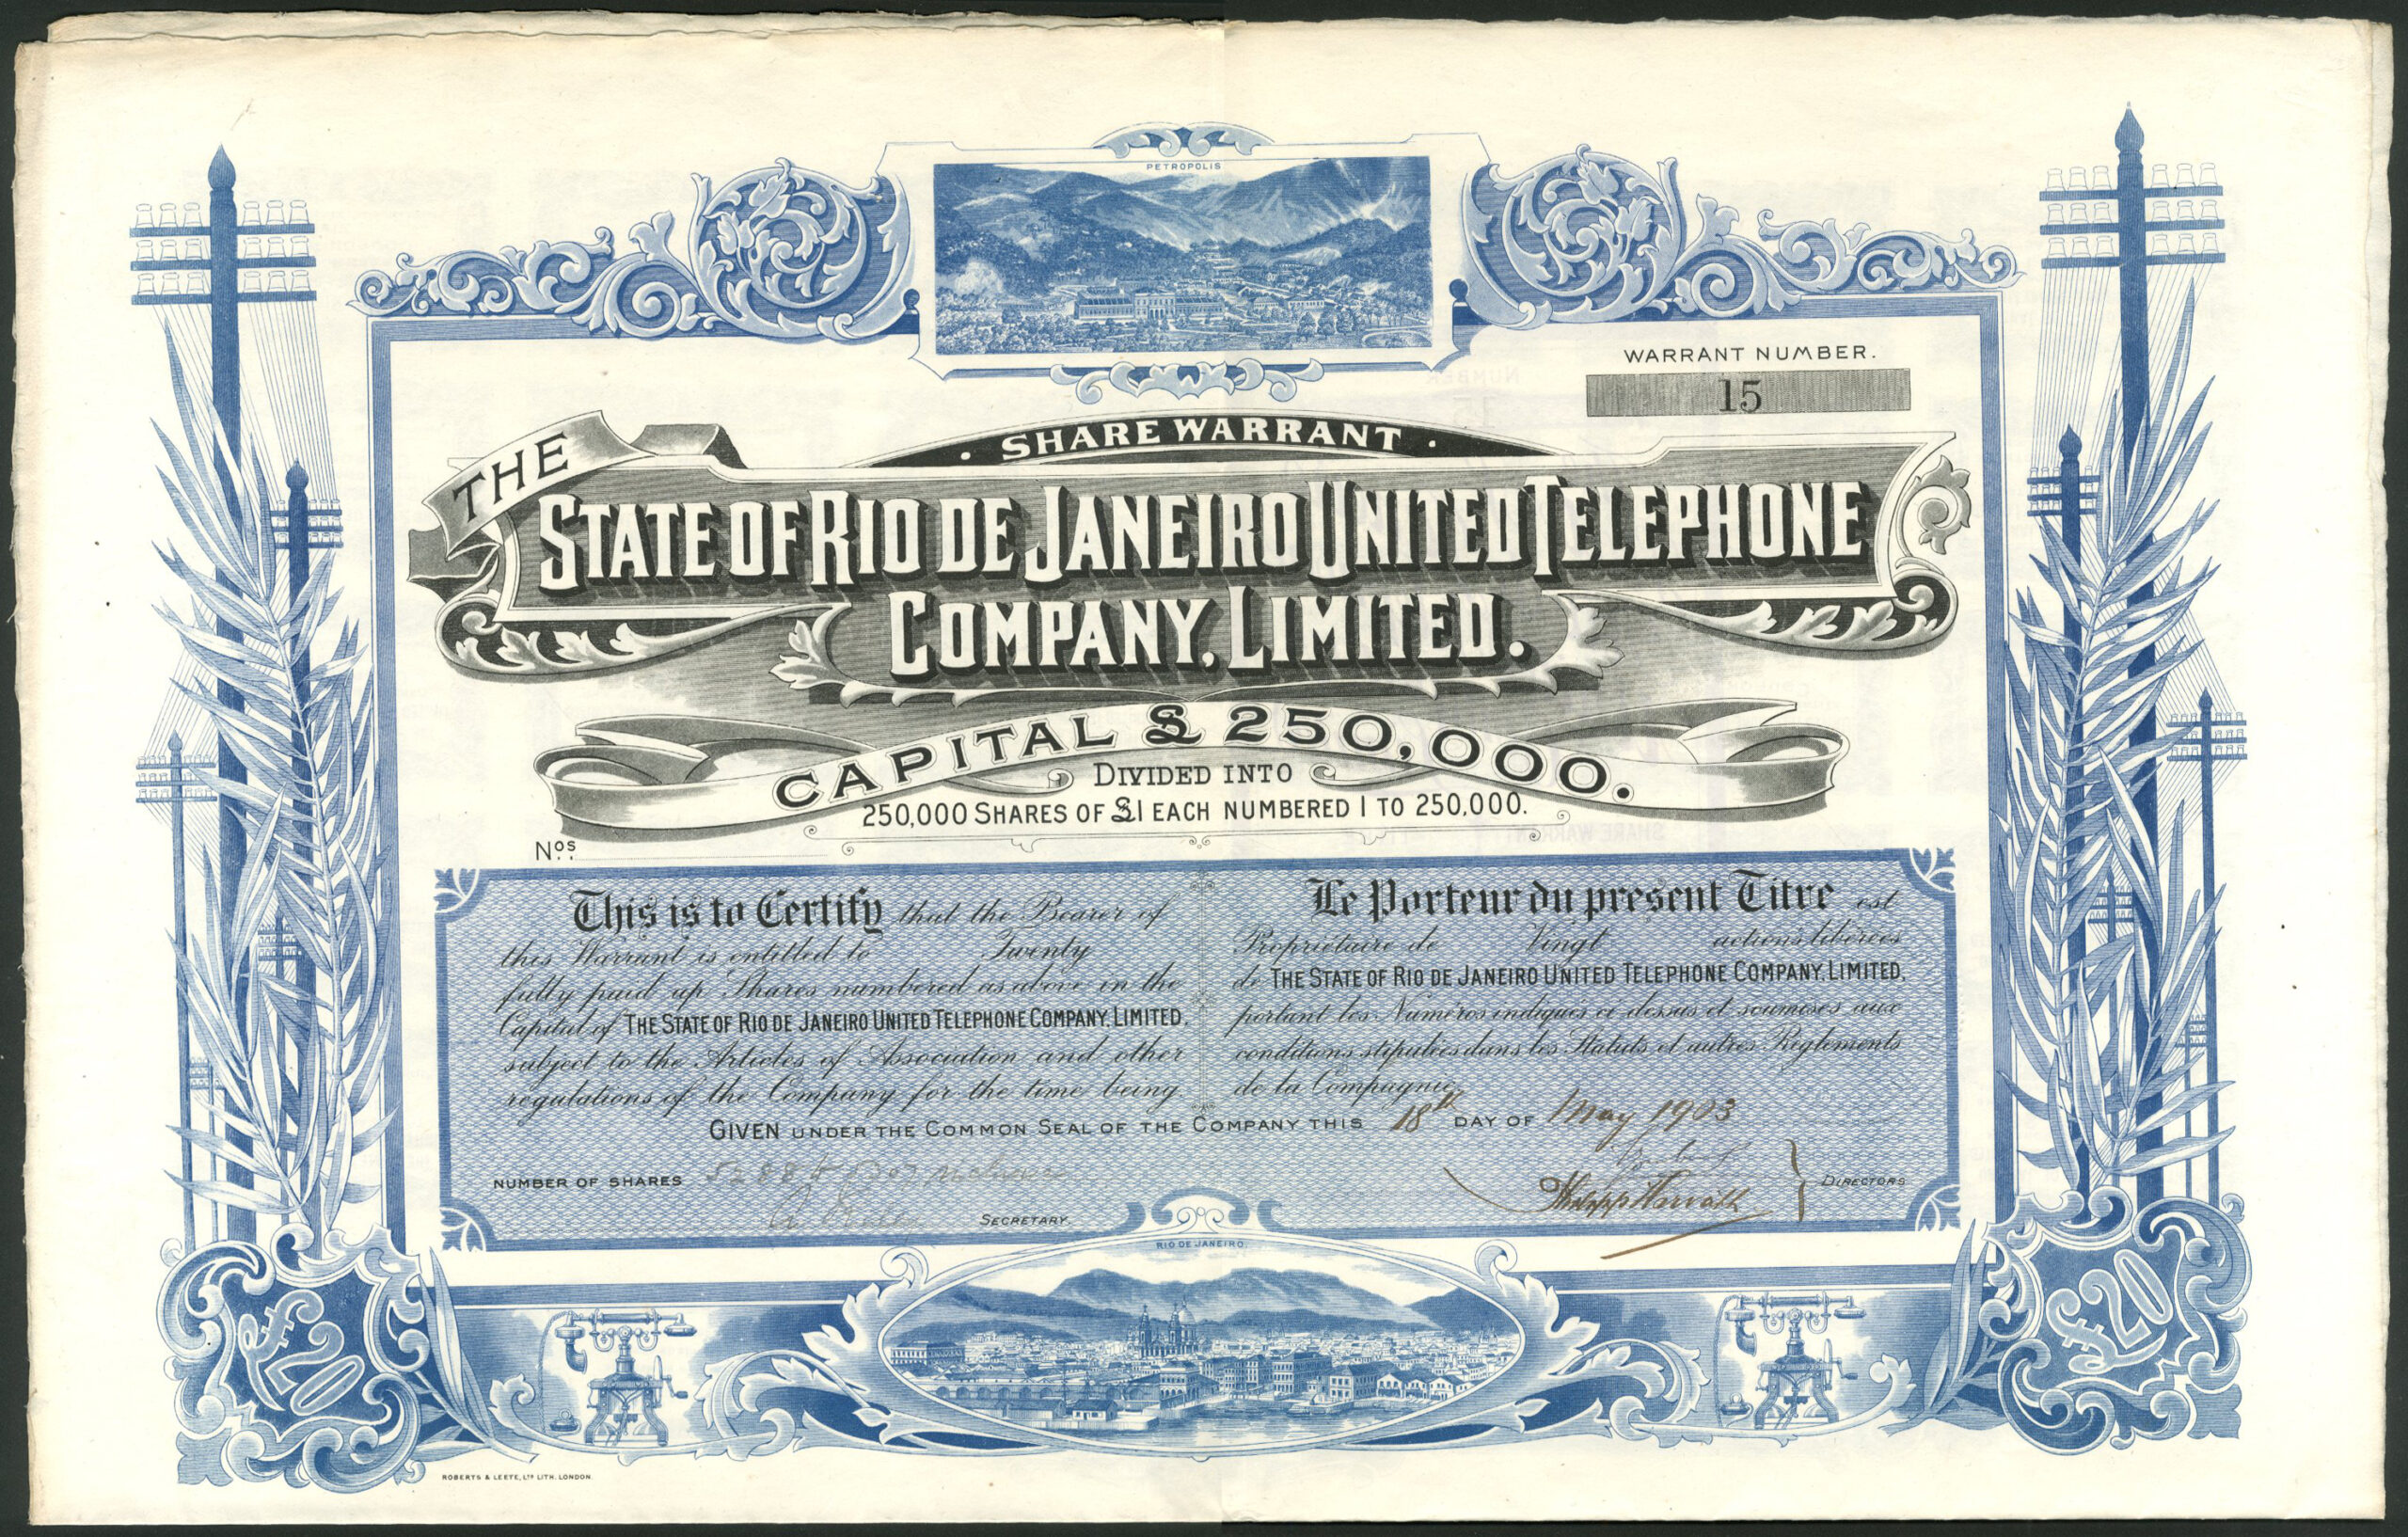 PETROPOLIS
WARRANT NUMBER.
15
SHARE WARRANT
THE
STATE OF RIO DE JANEIRO UNITED TELEPHONE
COMPANY, LIMITED.
CAPITAL £ 250,000.
DIVIDED INTO
250,000 SHARES OF £1 EACH NUMBERED 1 TO 250,000.
Nos.
This is to Certify that the Bearer of
this Warrant is entitled to Twenty
fully paid up Shares numbered as above in the
Capital of THE STATE OF RIO DE JANEIRO UNITED TELEPHONE COMPANY, LIMITED,
subject to the Articles of Association and other
regulations of the Company for the time being.
Le Porteur du present Titre est
Propriétaire de Vingt actions libérées
de THE STATE OF RIO DE JANEIRO UNITED TELEPHONE COMPANY, LIMITED,
portant les Numéros indiqués ci dessus et soumises aux
conditions stipulées dans les Statuts et autres Réglements
de la Compagnie.
GIVEN UNDER THE COMMON SEAL OF THE COMPANY THIS 18th DAY OF May 1903
NUMBER OF SHARES
SECRETARY.
DIRECTORS
RIO DE JANEIRO.
£20
£20
ROBERTS & LEETE, LTD LITH. LONDON.